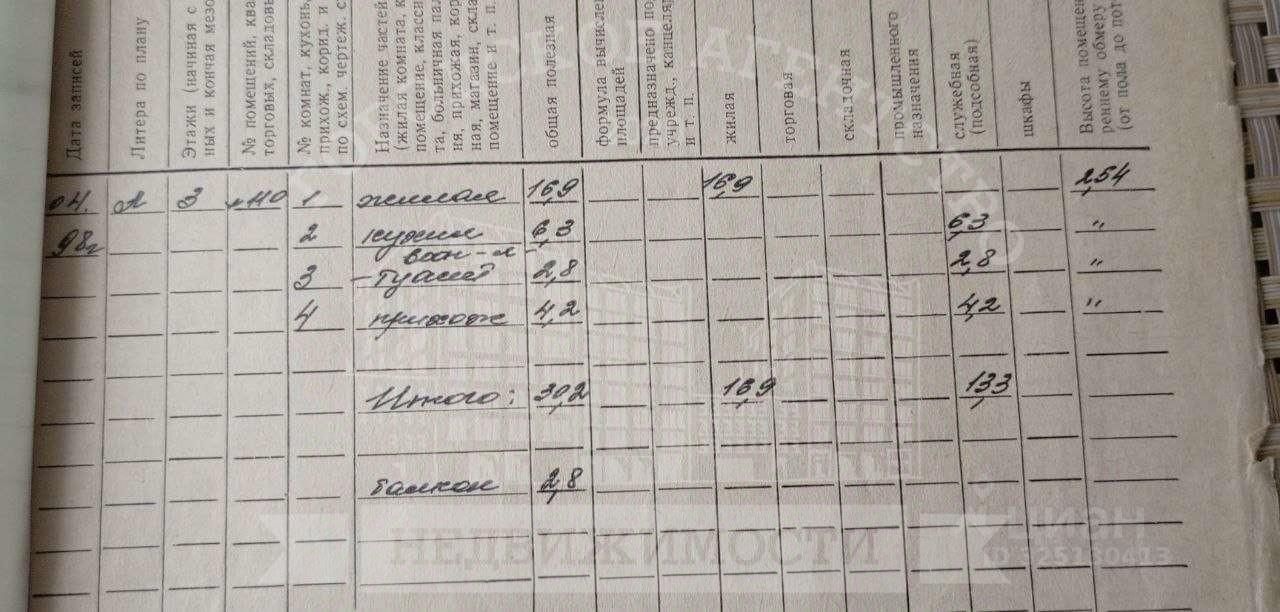 Дата записей
Литера по плану
Этажи (начиная с
ных и кончая мезо
№ помещений, ква
торговых, складовы
№ комнат, кухонь,
прихож., корид. и
по схем. чертеж. ст
Назначение частей
(жилая комната, к
помещение, класси
та, больничная пал
ня, прихожая, кор
ная, магазин, скла
помещение и т. п.
общая полезная
формула вычислен
площадей
предназначено под
учрежд., канцеляр
и т. п.
жилая
торговая
складочная
промышленного
назначения
служебная
(подсобная)
шкафы
Высота помещен
реннему обмеру
(от пола до пот
04. А 3 1 жилая 16,9 16,9 2,54
98г 2 кухня 6,3 6,3 "
ван-я -
3 -туалет 2,8 2,8 "
4 прихож 4,2 4,2 "
Итого: 30,2 16,9 13,3
балкон 2,8
АГЕНТСТВО
НЕДВИЖИМОСТИ
ЦИАН